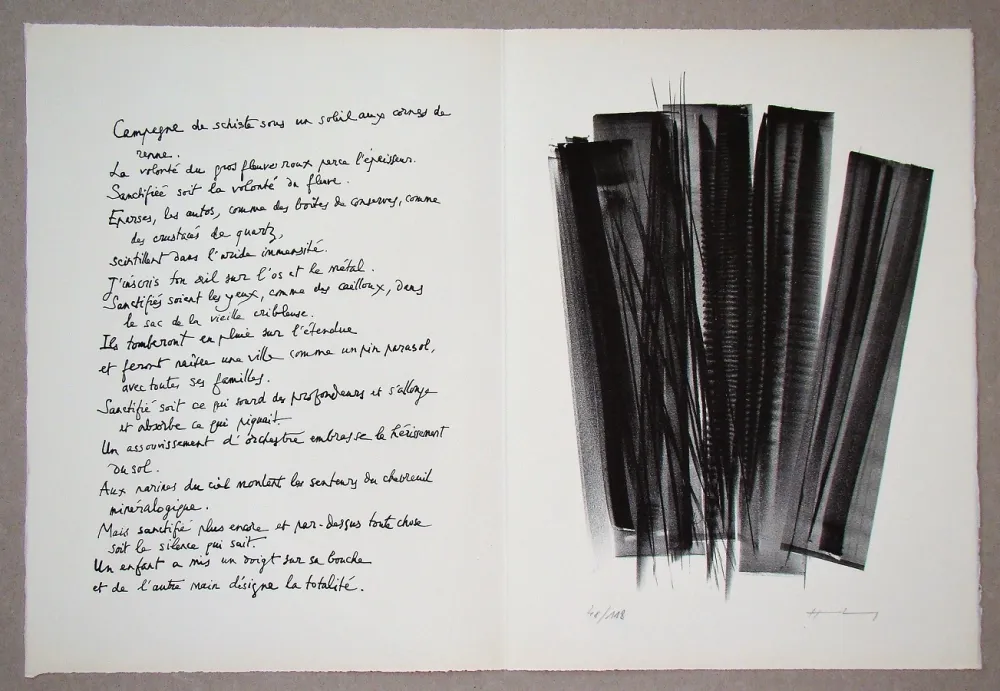 Campagne de schiste sous un soleil aux cornes de
renne.
La volonté du gros fleuve roux perce l'épaisseur.
Sanctifiée soit la volonté du fleuve.
Eparses, les autos, comme des boîtes de conserves, comme
des crustacés de quartz,
scintillent dans l'aride immensité.
J'inscris ton œil sur l'os et le métal.
Sanctifiés soient les yeux, comme des cailloux, dans
le sac de la vieille cribleuse.
Ils tomberont en pluie sur l'étendue
et feront naître une ville comme un pin parasol,
avec toutes ses familles.
Sanctifié soit ce qui sourd des profondeurs et s'allonge
et absorbe ce qui piquait.
Un assouvissement d'orchestre embrasse le hérissement
du sol.
Aux narines du ciel montent les senteurs du chevreuil
minéralogique.
Mais sanctifié plus encore et par-dessus toute chose
soit le silence qui sait.
Un enfant a mis un doigt sur sa bouche
et de l'autre main désigne la totalité.
/118